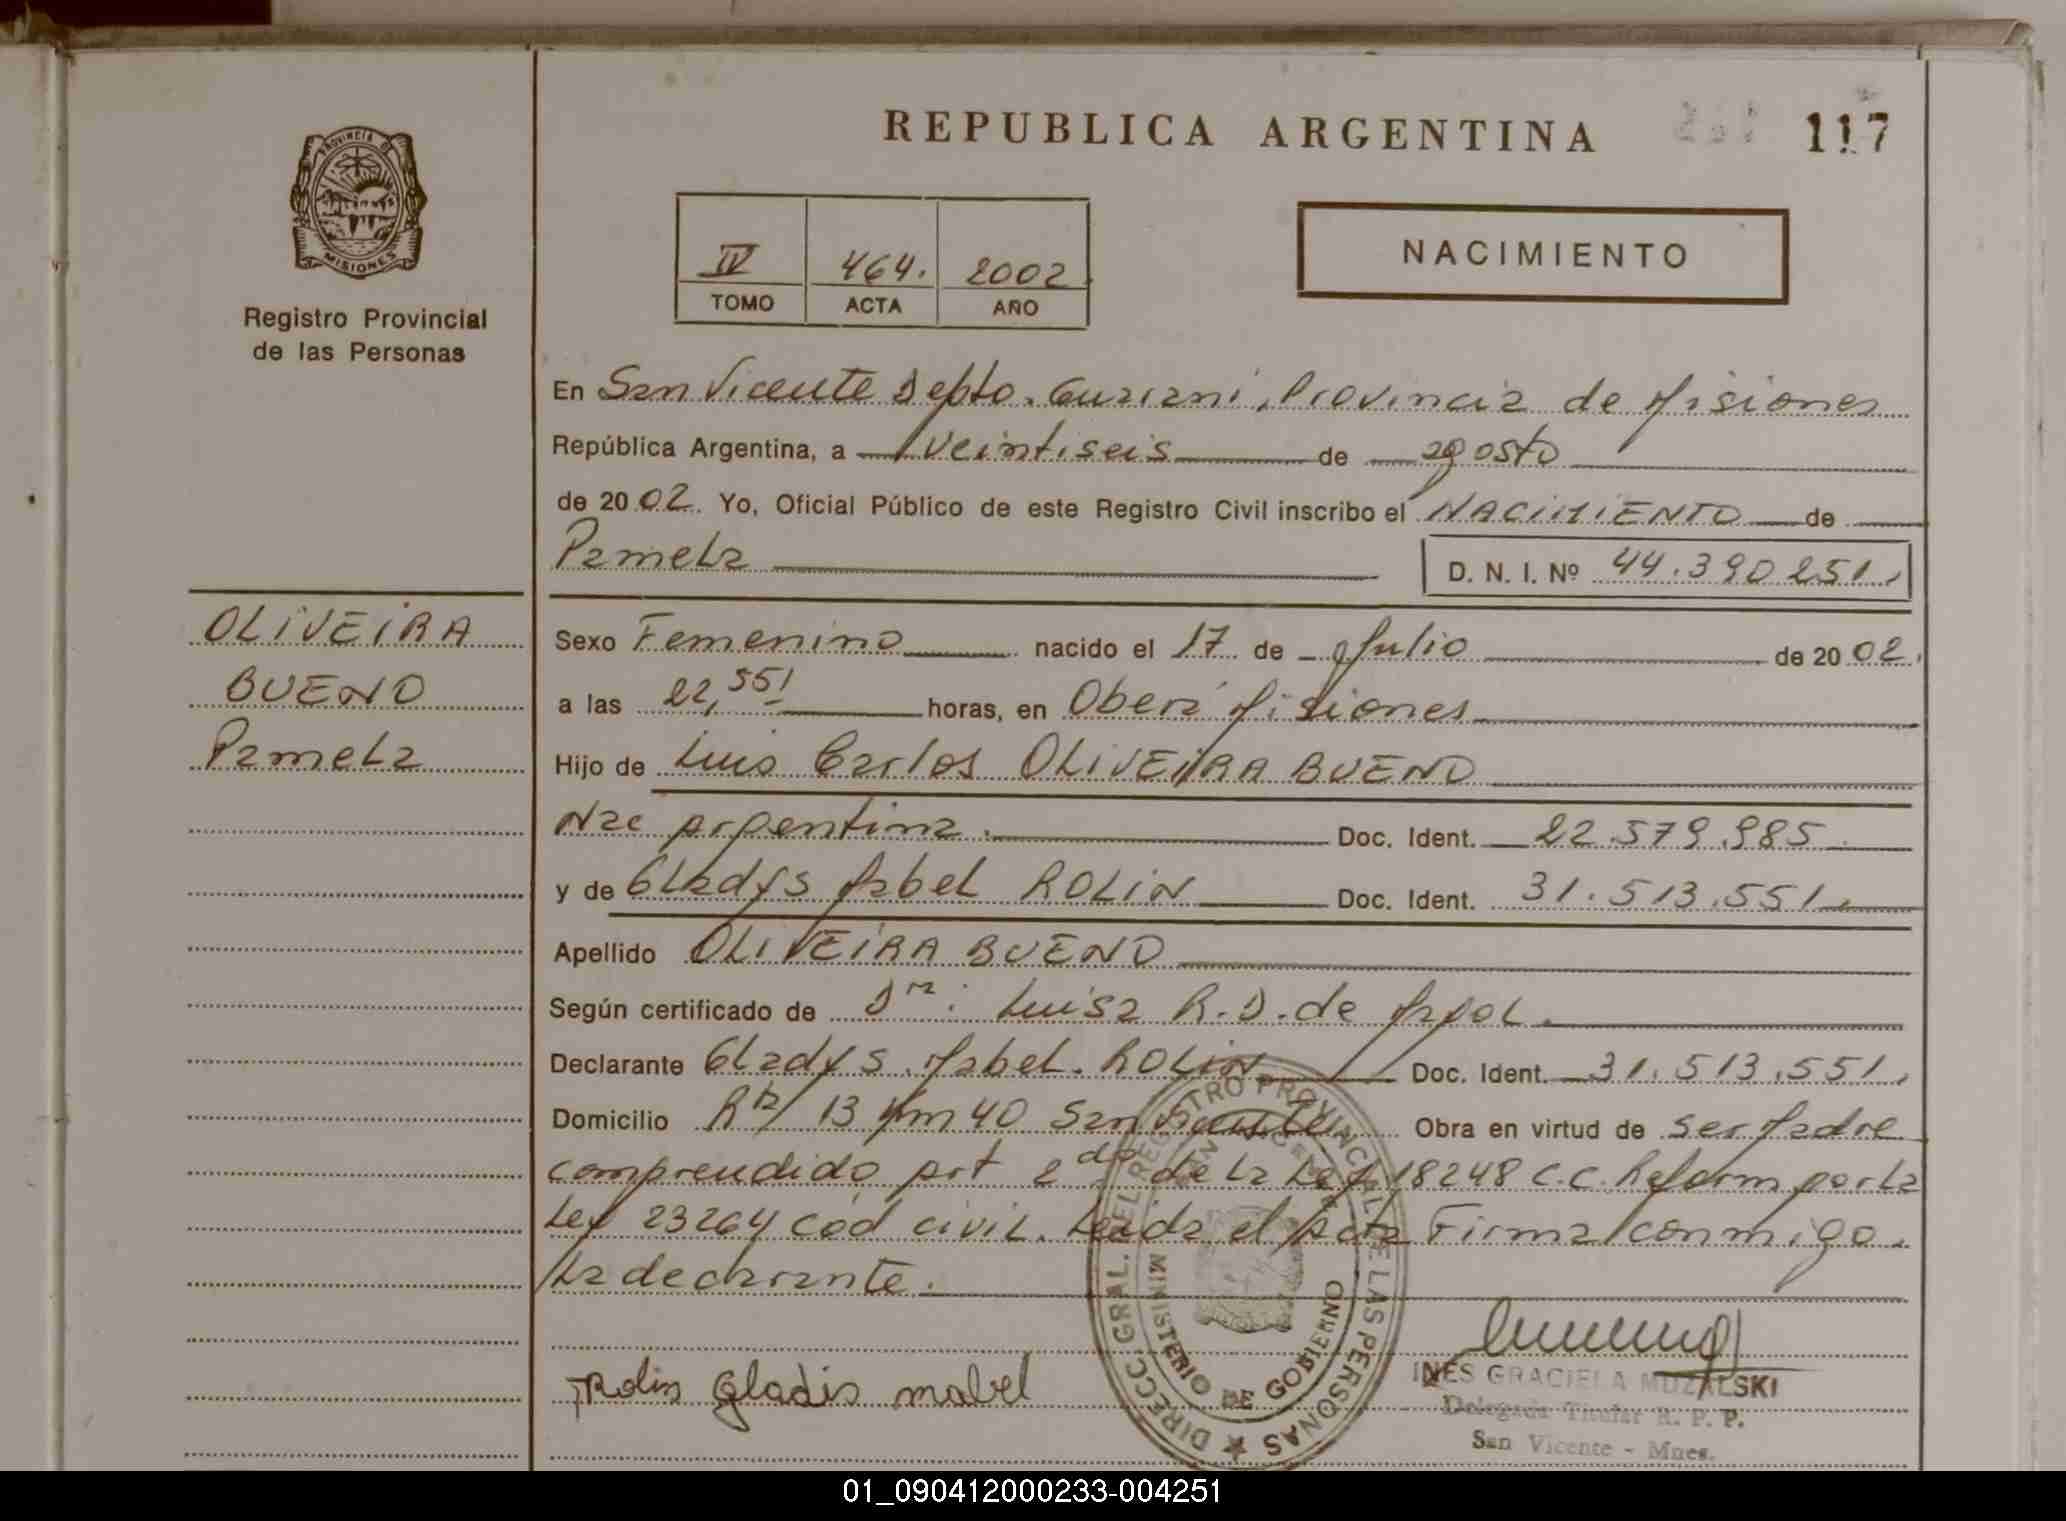 REPUBLICA ARGENTINA
117
PROVINCIA DE
MISIONES
Registro Provincial
de las Personas
IV 464. 2002
TOMO ACTA AÑO
NACIMIENTO
En San Vicente Depto. Guarani, Provincia de Misiones
República Argentina, a veintiseis de agosto
de 2002. Yo, Oficial Público de este Registro Civil inscribo el NACIMIENTO de
Pamela
D. N. I. Nº 44.390.251.
OLIVEIRA
BUENO
Pamela
Sexo Femenino nacido el 17 de Julio de 2002.
a las 22,55' horas, en Oberá Misiones
Hijo de Luis Carlos OLIVEIRA BUENO
Nac Argentina. Doc. Ident. 22.579.985
y de Gladys Mabel ROLIN Doc. Ident. 31.513.551.
Apellido OLIVEIRA BUENO
Según certificado de Dra: Luisa R. D. de
Declarante Gladys Mabel ROLIN Doc. Ident. 31.513.551.
Domicilio 13 Km 40 San Vicente Obra en virtud de ser Madre
comprendido Art 2do de la Ley 18248 C.C. Reform por la
Ley 23264 Cód civil. Leida el Acta Firma conmigo.
La declarante.
Rolin Gladis mabel
DIRECC. GRAL. DEL REGISTRO PROVINCIAL DE LAS PERSONAS
SAN VICENTE
MINISTERIO DE GOBIERNO
INES GRACIELA MUZALSKI
Delegada Titular R. P. P.
San Vicente - Mnes.
01_090412000233-004251